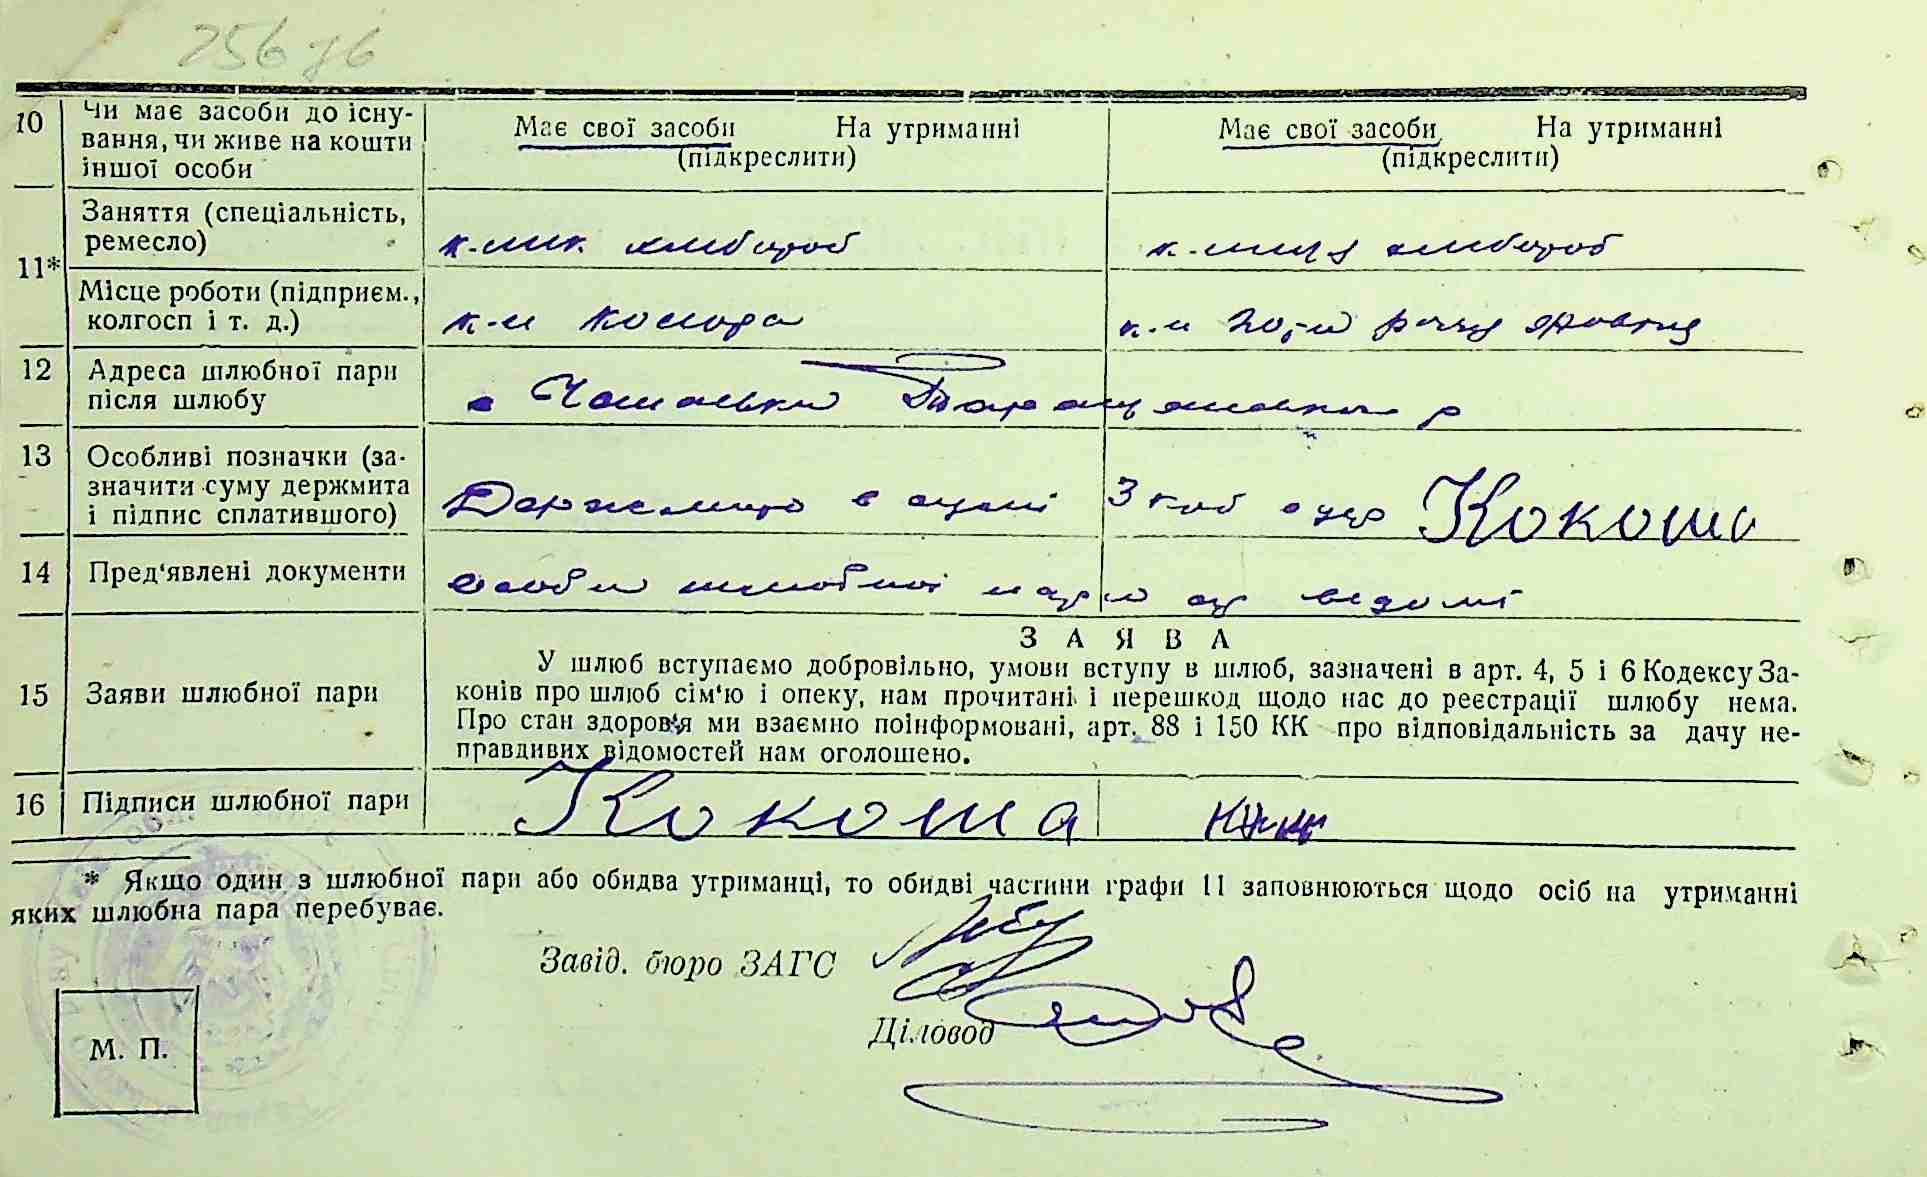 256 зб
10 Чи має засоби до існу-
вання, чи живе на кошти
іншої особи
Має свої засоби На утриманні
(підкреслити)
Має свої засоби На утриманні
(підкреслити)
11* Заняття (спеціальність,
ремесло)
к-ник хлібороб
к-ниця хлібороб
Місце роботи (підприєм.,
колгосп і т. д.)
к-п
к-п 20-ти річчя Жовтня
12 Адреса шлюбної пари
після шлюбу
р
13 Особливі позначки (за-
значити суму держмита
і підпис сплатившого)
Держмито в сумі 3 карб Кокоша
14 Пред'явлені документи
особи шлюбної пари відомі
15 Заяви шлюбної пари
ЗАЯВА
У шлюб вступаємо добровільно, умови вступу в шлюб, зазначені в арт. 4, 5 і 6 Кодексу За-
конів про шлюб сім'ю і опеку, нам прочитані і перешкод щодо нас до реєстрації шлюбу нема.
Про стан здоров'я ми взаємно поінформовані, арт. 88 і 150 КК про відповідальність за дачу не-
правдивих відомостей нам оголошено.
16 Підписи шлюбної пари
Кокоша
* Якщо один з шлюбної пари або обидва утриманці, то обидві частини графи 11 заповнюються щодо осіб на утриманні
яких шлюбна пара перебуває.
Завід. бюро ЗАГС
Діловод
М. П.